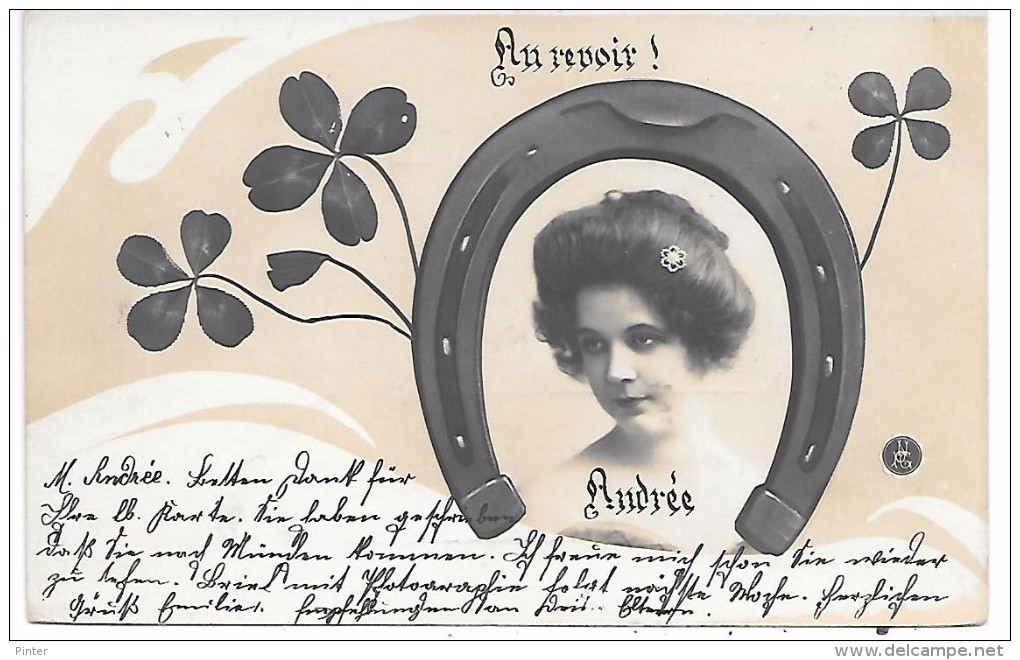 Au revoir !
Andrée
M. Andrée. Besten Dank für
Ihre lb. Karte. Sie haben geschrieben
daß Sie nach München kommen. Ich freue mich schon Sie wieder
zu sehen. Brief mit Photographie folgt nächste Woche. Herzlichen
Gruß Emilie. Empfehlungen an Eltern.
NPG
Pinter
www.delcampe.net